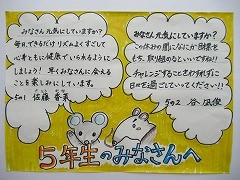 みなさん元気にしていますか？
毎日できるだけリズムよくすごして
心身ともに健康でいられるように
しましょう！早くみなさんに会える
ことを楽しみにしています。
5の1 佐藤
みなさん元気にしていますか？
この休みの間になにか目標を
もち、取り組めるといいですね!!
チャレンジすることをわすれずに
日々を過ごしていってください!!!
5の2 谷
5年生のみなさんへ